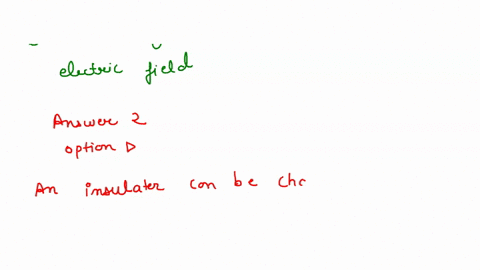 electric field
Answer 2
option D
An insulater can be cha